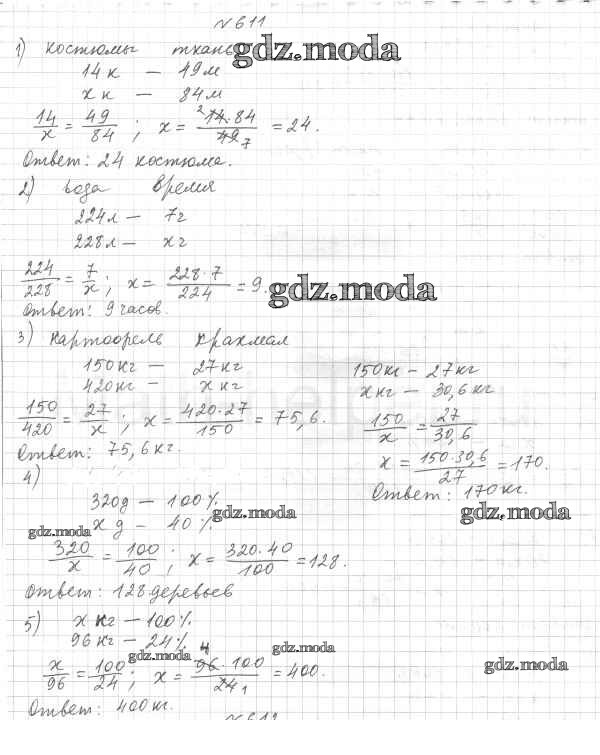 №611
1) костюмы ткань
gdz.moda
14 к — 49 м
х к — 84 м
14/х = 49/84 ; х = 14·84/49 = 24.
2 7
Ответ: 24 костюма.
2) вода время
224 л — 7 г
228 л — х г
224/228 = 7/х ; х = 228·7/224 = 9.
gdz.moda
Ответ: 9 часов.
3) картофель крахмал
150 кг — 27 кг
420 кг — х кг
150/420 = 27/х ; х = 420·27/150 = 75,6.
Ответ: 75,6 кг.
150 кг — 27 кг
х кг — 30,6 кг
150/х = 27/30,6
х = 150·30,6/27 = 170.
Ответ: 170 кг.
4)
320 д — 100%
gdz.moda
х д — 40%
gdz.moda
gdz.moda
320/х = 100/40 ; х = 320·40/100 = 128.
Ответ: 128 деревьев
5) х кг — 100%
96 кг — 24%
gdz.moda
gdz.moda
gdz.moda
х/96 = 100/24 ; х = 96·100/24 = 400.
4 1
Ответ: 400 кг.